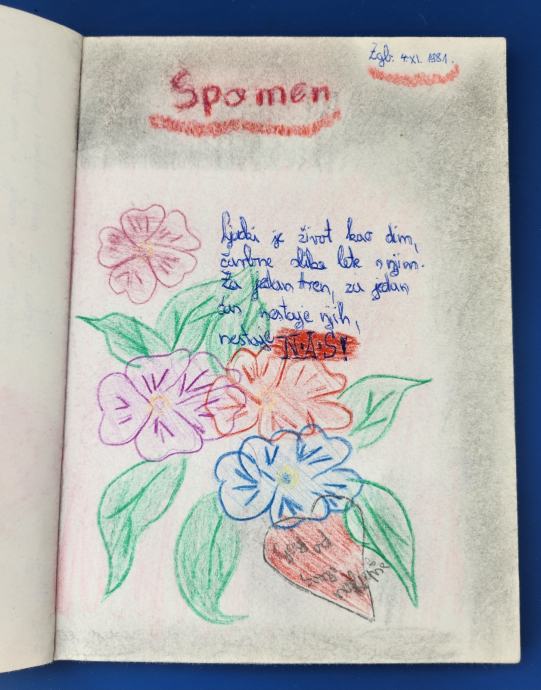 Zgb. 4.XI. 1981.
Spomen
ljudski je život kao dim,
čarobne slike lete s njim.
Za jedan tren, za jedan
čas nestaje njih,
nestaje N.A.S!